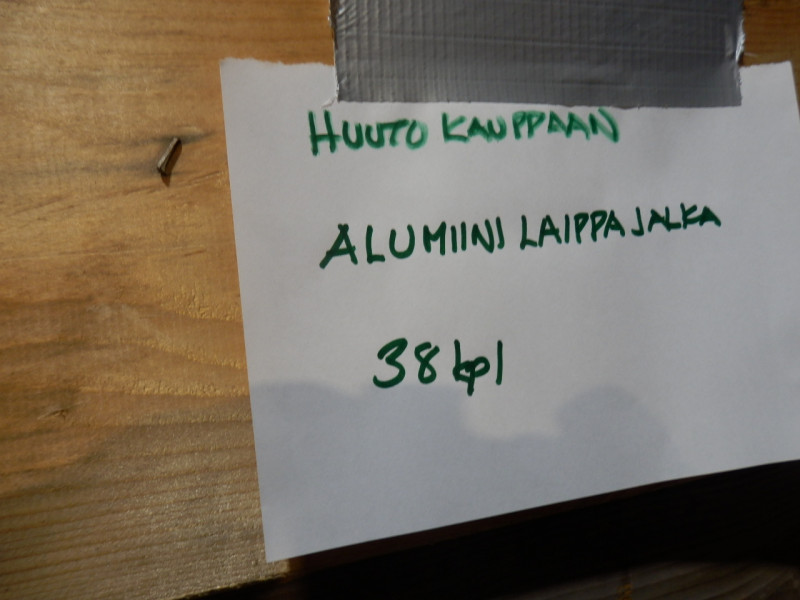 HUUTO KAUPPAAN
ALUMIINI LAIPPAJALKA
38 kpl